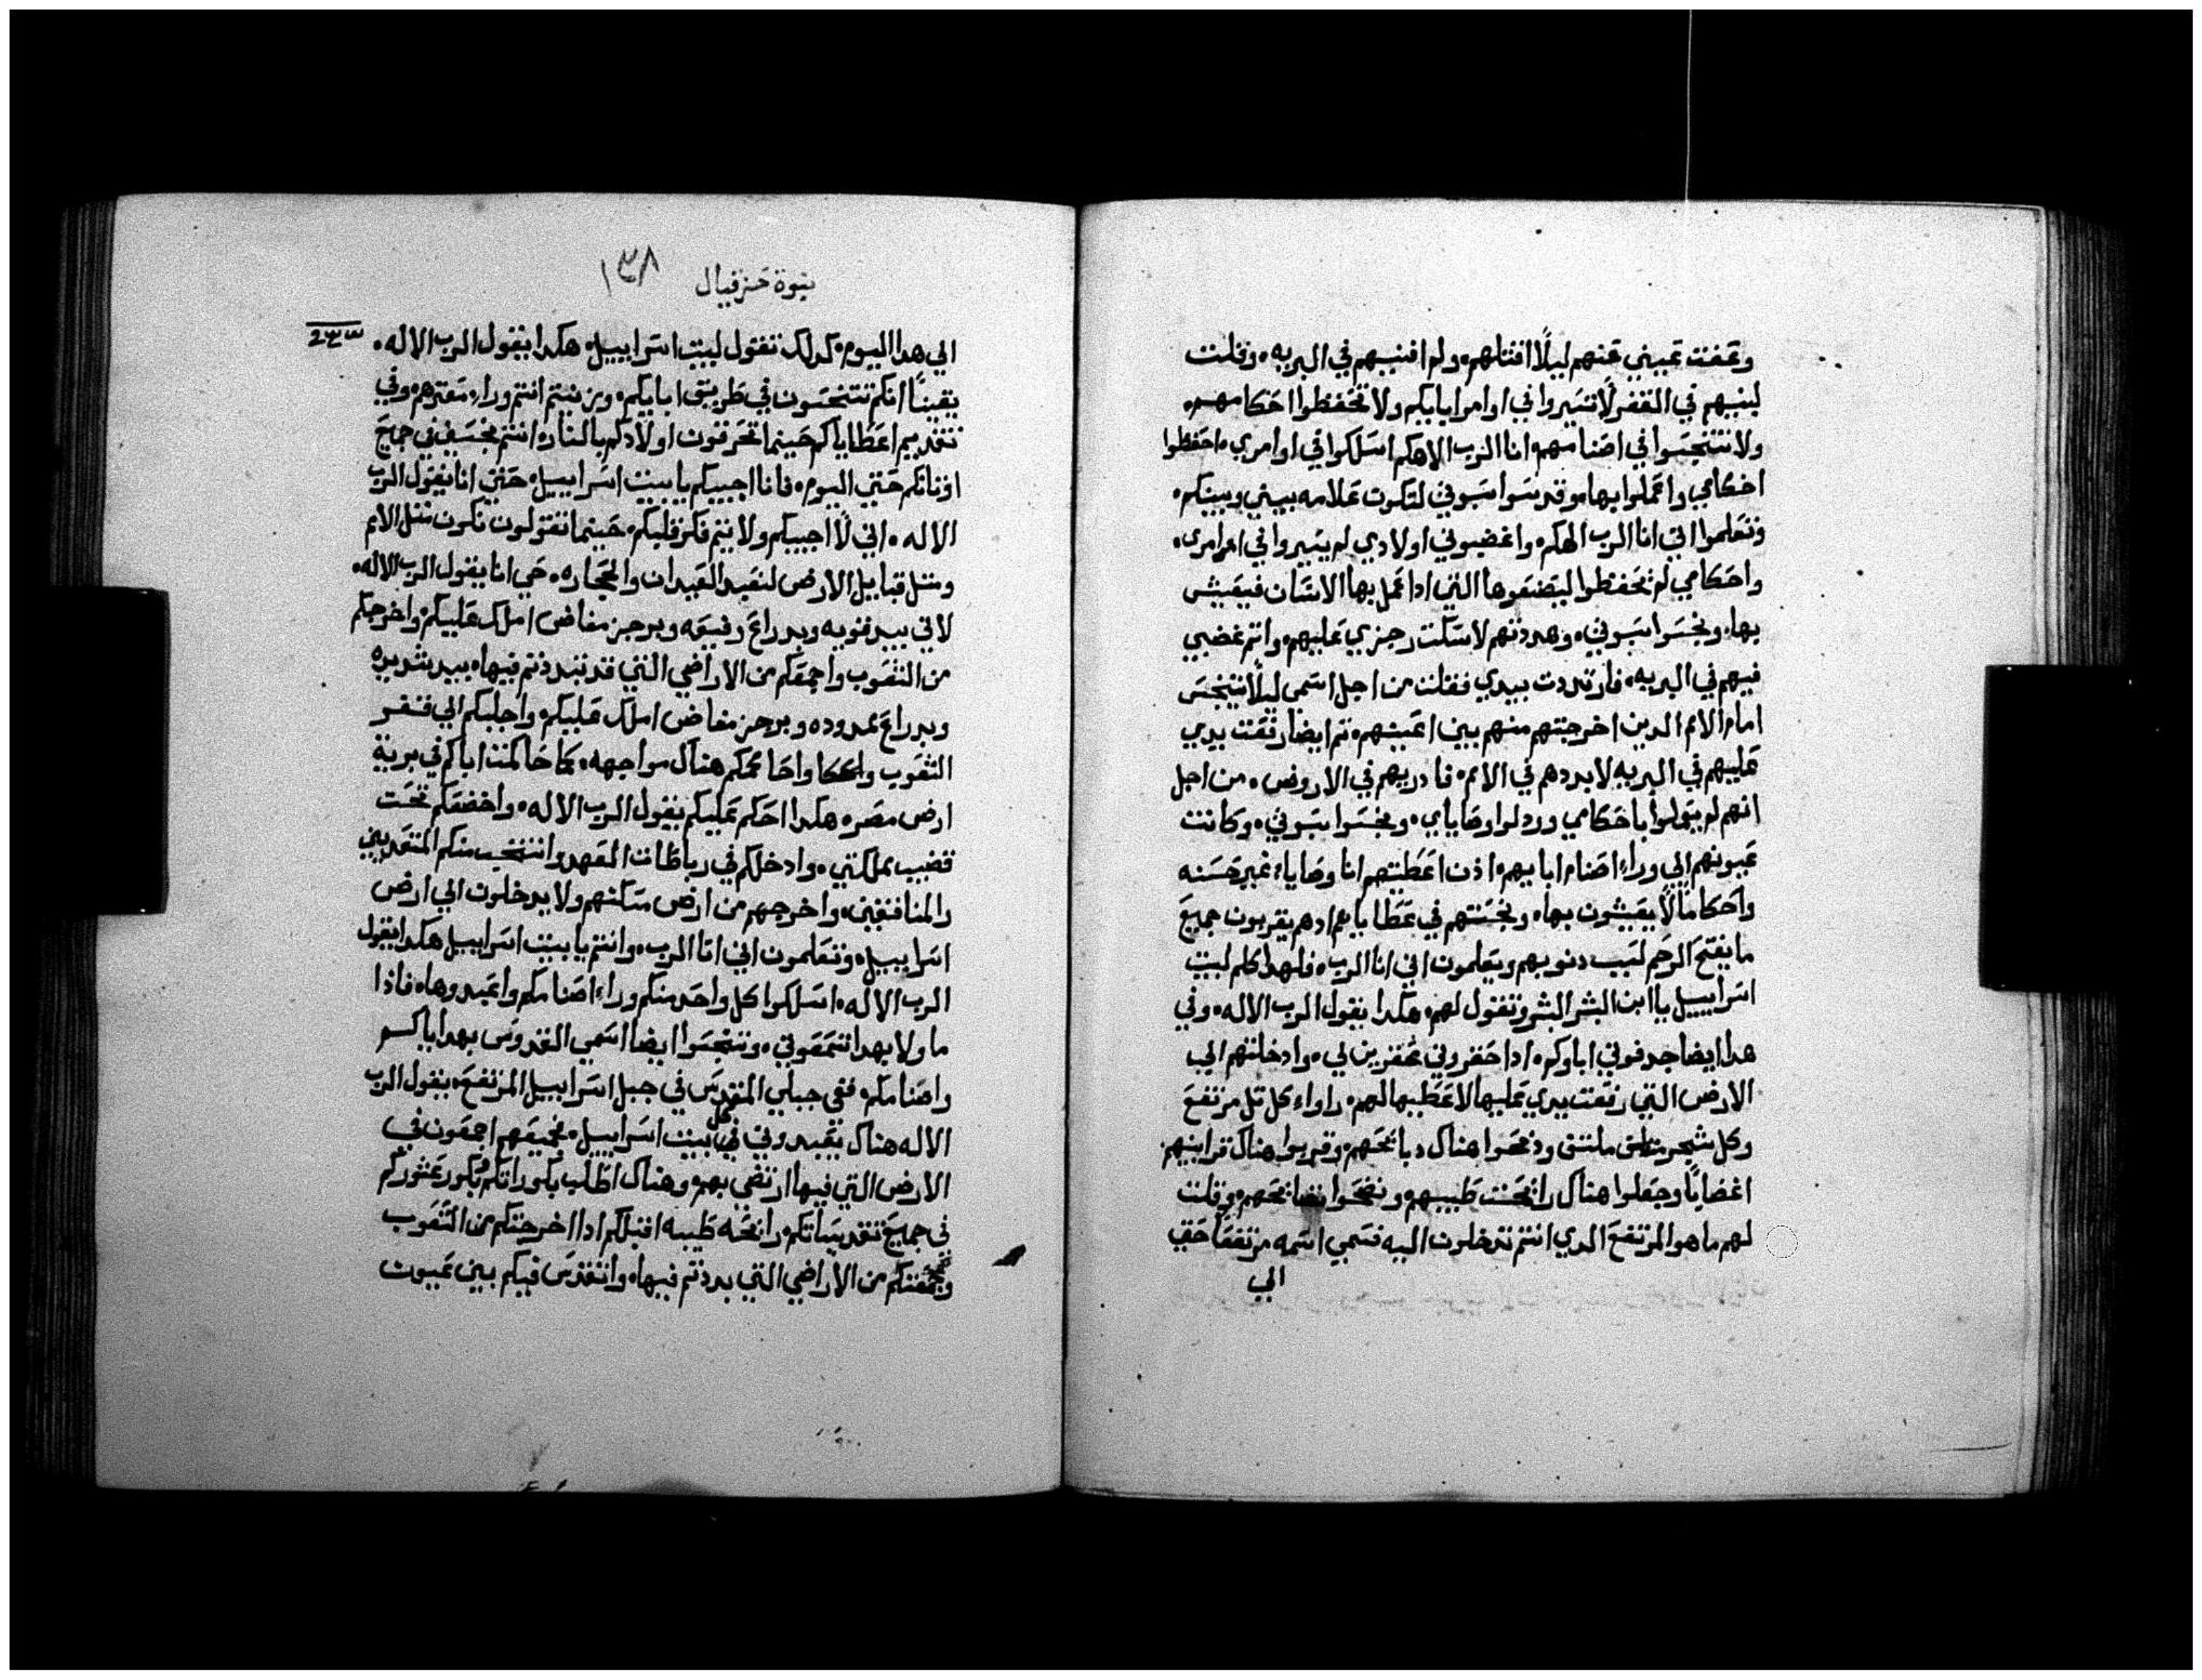 وعفت عيني عنهم ليلًا اقتلهم، ولم افنيهم في البريه، وقلت
لبنيهم في القفر لا تسيروا في اوامر ابايكم ولا تحفظوا احكامهم،
ولا تتنجسوا في اصنامهم، انا الرب الاهكم اسلكوا في اوامري، احفظوا
احكامي واعملوا بها، وقدسوا سبوتي لتكون علامه بيني وبينكم،
وتعلموا اني انا الرب الهكم، واغضبوني اولادي لم يسيروا في اوامري،
واحكامي لم تحفظوا ليصنعوها التي ادا عمل بها الانسان فيعيش
بها، ونجسوا سبوتي، وهددتهم لاسكت رجزي عليهم، واتم غضبي
فيهم في البريه، فارتددت بيدي ففعلت من اجل اسمي ليلًا يتنجس
امام الامم الدين اخرجتهم منهم بين اعينهم، تم ايضًا رفعت يدي
عليهم في البريه لابددهم في الامم، فادريهم في الاروض، من اجل
انهم لم يعملوا باحكامي وردلوا وصاياي، ونجسوا سبوتي، وكانت
عيونهم الي وراء اصنام ابايهم، اذن اعطيتهم انا وصاياء غير حسنه
واحكامًا لا يعيشون بها، ونجستهم في عطاياهم ادهم يقربون جميع
ما يفتح الرحم لسبب دنوبهم ويعلمون اني انا الرب، فلهدا كلم لبيت
اسراييل يا ابن البشر البشر وتقول لهم، هكدا يقول الرب الاله، وفي
هدا ايضا جدفوني اباوكم، ادا حقروني محقرين لي، وادخلتهم الي
الارض التي رفعت يدي عليها لاعطيها لهم، راواء كل تل مرتفع
وكل شجر ملتق ودبحوا هناك دبايحهم، وقربوا هناك قرابينهم
اغضابًا وجعلوا هناك رايحت طيبهم، ونضحوا نضايحهم، وقلت
لهم ما هو المرتفع الدي انتم تدخلون اليه فسمي اسمه مرتفعًا حتي
الي
نبوة حزقيال ١٣٨
الي هدا اليوم، كدلك تقول لبيت اسراييل، هكدا يقول الرب الاله،
يقينًا انكم تتنجسون في طريق ابايكم، وبزنيتم انتم وراء معترهم، وفي
تقديم اعطاياكم حينما تحرقون اولادكم بالنار، انتم نجسين في جميع
اوثانكم حتي اليوم، فانا اجيبكم يا بيت اسراييل، حتي انا يقول الرب
الاله، اني لا اجيبكم ولا يتم فكر قلبكم، حينما تقولون نكون متل الامم
ومتل قبايل الارض لنعبد العيدان والحجاره، حي انا يقول الرب الاله،
لاني بيد قويه وبدراع رفيعه وبرجز مفاض املك عليكم، واخرجكم
من الشعوب واجمعكم من الاراضي التي قد تبددتم فيها، بيد شديده
وبدراع ممدوده وبرجز مفاض املك عليكم، واجلبكم الي قفر
الشعوب واحاكمكم هناك مواجهه، كما حاكمت اباكم في برية
ارض مصر، هكدا احكم عليكم يقول الرب الاله، واخضعكم تحت
قضيب مملكتي، وادخلكم في رباطات العهد، وانتخب منكم المتعديين
والمنافقين، واخرجهم من ارض سكنهم ولا يدخلون الي ارض
اسراييل، وتعلمون اني انا الرب، وانتم يا بيت اسراييل هكدا يقول
الرب الاله، اسلكوا كل واحد منكم وراء اصنامكم واعبدوها، فاذا
ما ولا بهدا تسمعوني، وتنجسوا ايضا اسمي القدوس بهداياكم
واصنامكم، ففي جبلي المقدس في جبل اسراييل المرتفع، يقول الرب
الاله هناك يعبدوني في كل بيت اسراييل، جميعهم اجمعون في
الارض التي فيها ارتضي بهم، وهناك اطلب بكوراتكم وبكور عشوركم
في جميع تقديساتكم، رايحه طيبه اقبلكم ادا اخرجتكم من الشعوب
وجمعتكم من الاراضي التي بددتم فيها، واتقدس فيكم بين عيون